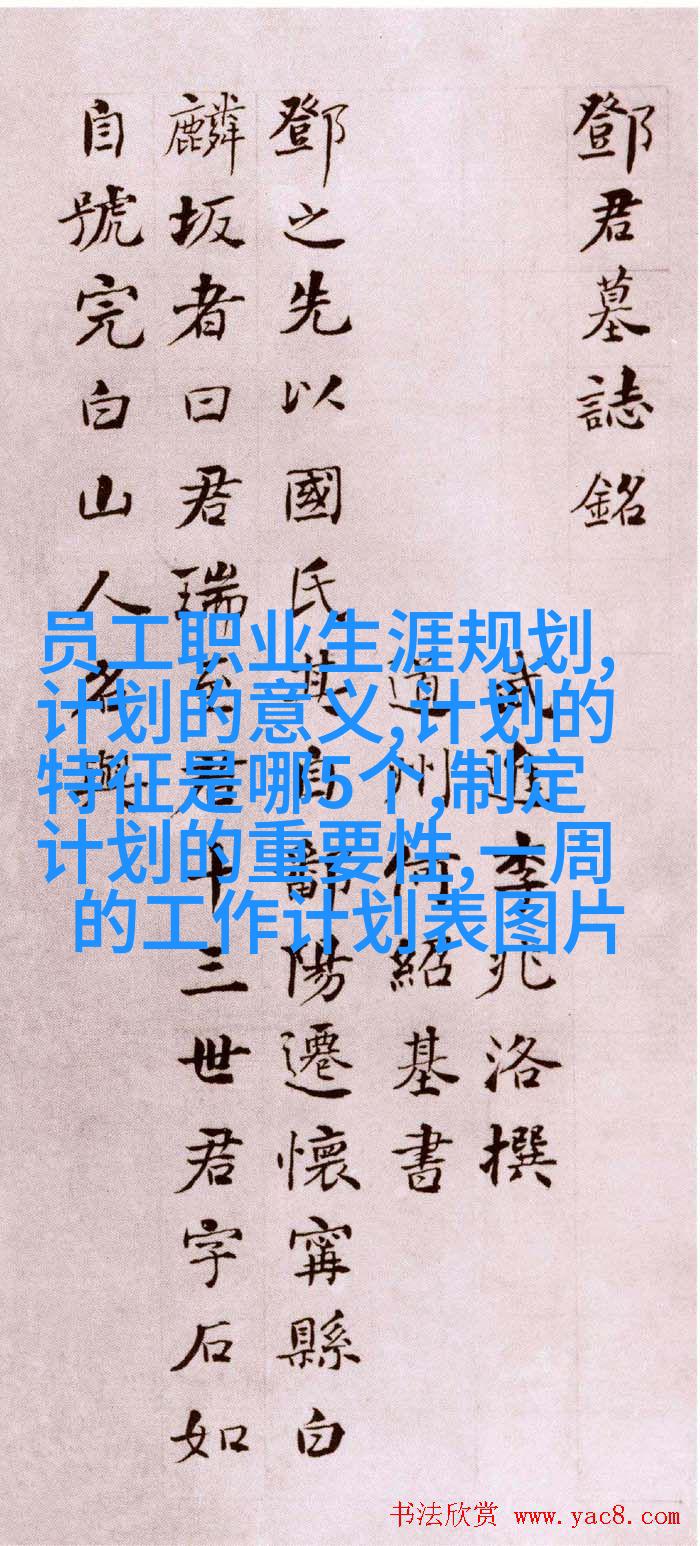 鄧君墓誌銘
武進李兆洛撰
道州何紹基書
鄧之先以國氏其自鄱陽遷懷甯縣白
麟坂者曰君瑞至君十三世君字石如
自號完白山人
员工职业生涯规划,
计划的意义,计划的
特征是哪5个,制定
计划的重要性,一周
的工作计划表图片
书法欣赏 www.yac8.com